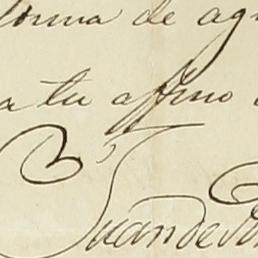 forma de ag
a tu affmo
Juan de